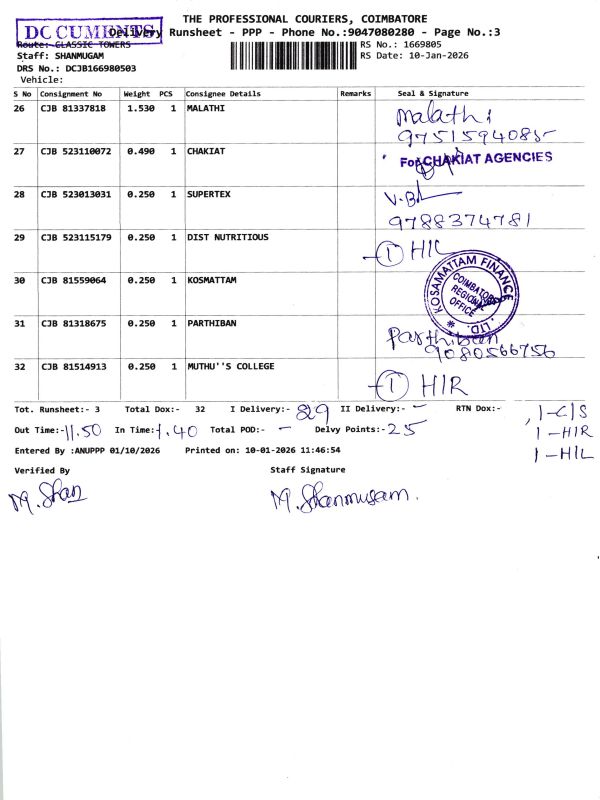 THE PROFESSIONAL COURIERS, COIMBATORE
DC CUMENTS
Delivery Runsheet - PPP - Phone No.:9047080280 - Page No.:3
Route: CLASSIC TOWERS
RS No.: 1669805
Staff: SHANMUGAM
RS Date: 10-Jan-2026
DRS No.: DCJB166980503
Vehicle:
S No Consignment No Weight PCS Consignee Details Remarks Seal & Signature
26 CJB 81337818 1.530 1 MALATHI Malathi
9751594085
27 CJB 523110072 0.490 1 CHAKIAT For CHAKIAT AGENCIES
28 CJB 523013031 0.250 1 SUPERTEX
9788374781
29 CJB 523115179 0.250 1 DIST NUTRITIOUS 1 H/L
30 CJB 81559064 0.250 1 KOSMATTAM
KOSAMATTAM FINANCE LTD.
COIMBATORE
REGIONAL
OFFICE
31 CJB 81318675 0.250 1 PARTHIBAN Parthiban
9080566756
32 CJB 81514913 0.250 1 MUTHU''S COLLEGE 1 H/R
Tot. Runsheet:- 3 Total Dox:- 32 I Delivery:- 829 II Delivery:- - RTN Dox:- 1-C/S
Out Time:-11.50 In Time:-1.40 Total POD:- - Delvy Points:-25 1-H/R
Entered By :ANUPPP 01/10/2026 Printed on: 10-01-2026 11:46:54 1-H/L
Verified By Staff Signature
M. Shan M. Shanmugam.